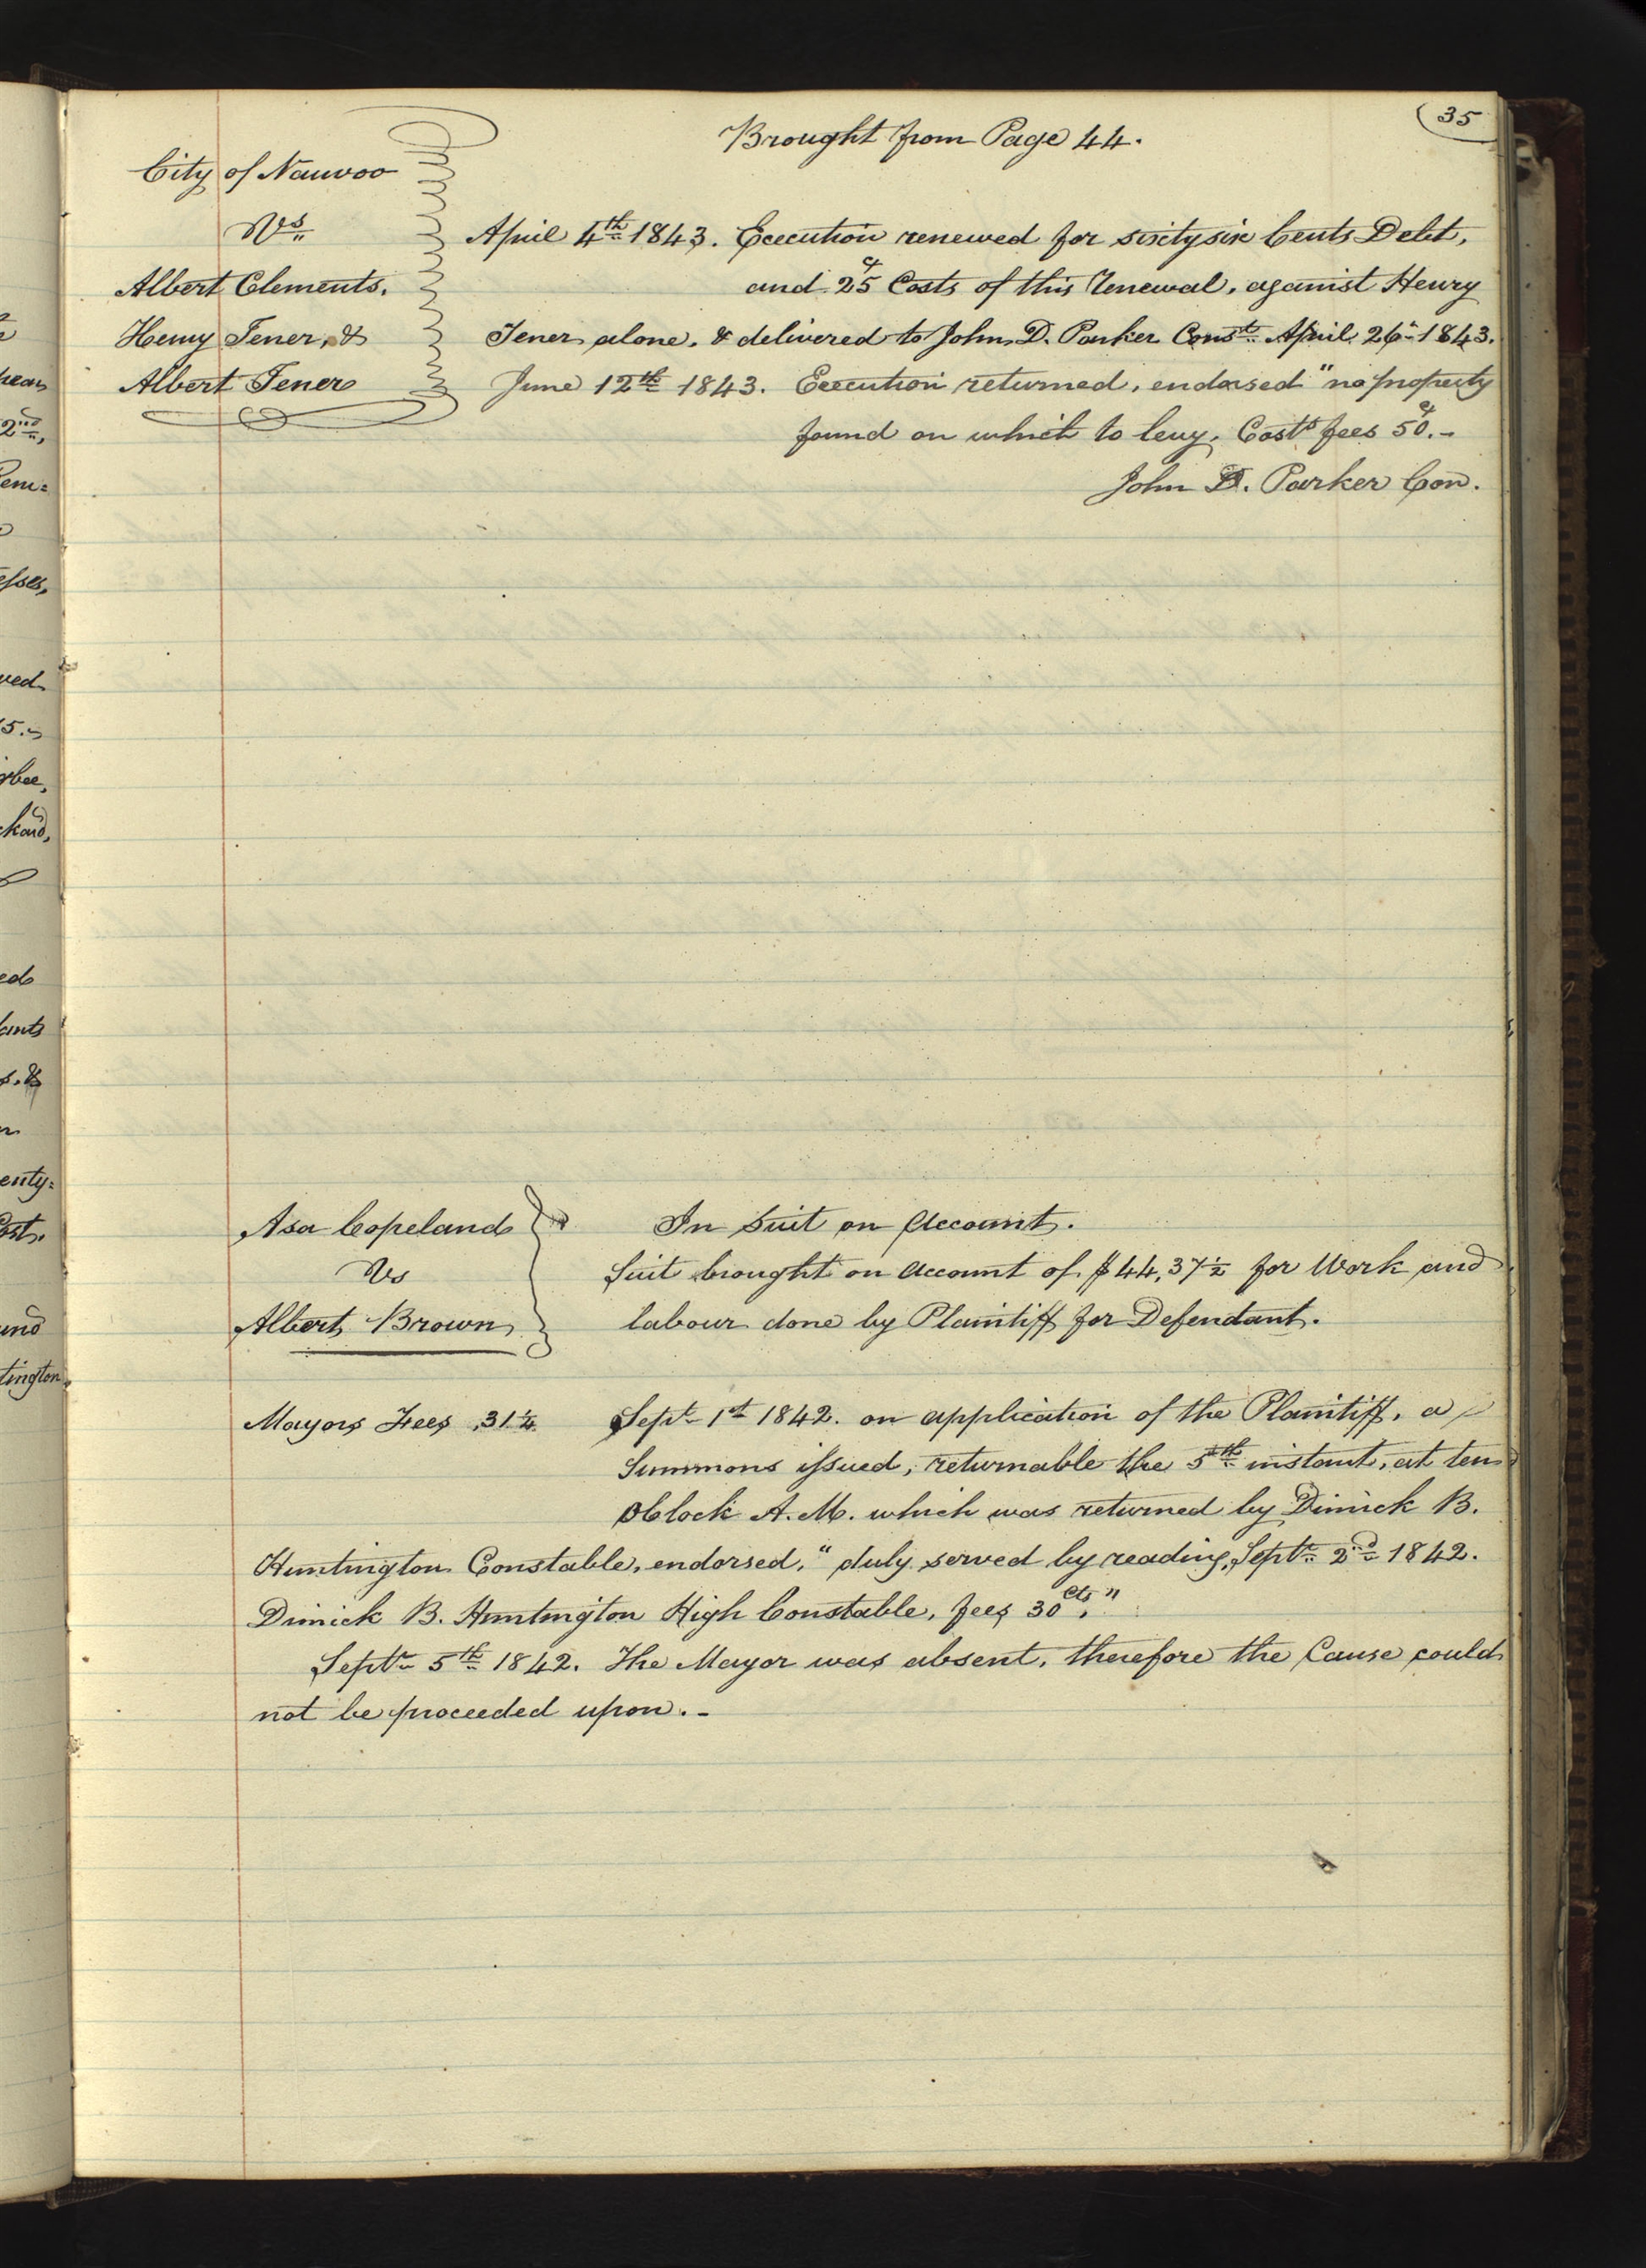 35
Brought from Page 44.
City of Nauvoo
Vs
Albert Clements,
Henry Fener, &
Albert Fener
April 4th 1843. Execution renewed for sixty six Cents Debt,
and 25 cts Costs of this renewal, against Henry
Fener alone. & delivered to John D. Parker Const. April 26th 1843.
June 12th 1843. Execution returned, endorsed "no property
found on which to levy. Costs fees 50 cts.-
John D. Parker Con.
Asa Copeland
Vs
Albert Brown
In Suit on Account.
Suit brought on account of $44,37½ for Work and
labour done by Plaintiff for Defendant.
Mayors Fees ,31¼
Sept. 1st 1842. on application of the Plaintiff, a
Summons issued, returnable the 5th instant, at ten
oClock A.M. which was returned by Dimick B.
Huntington Constable, endorsed, "duly served by reading, Septr. 2nd 1842.
Dimick B. Huntington High Constable, fees 30 cts,"
Septr. 5th 1842. The Mayor was absent, therefore the Cause could
not be proceeded upon.-